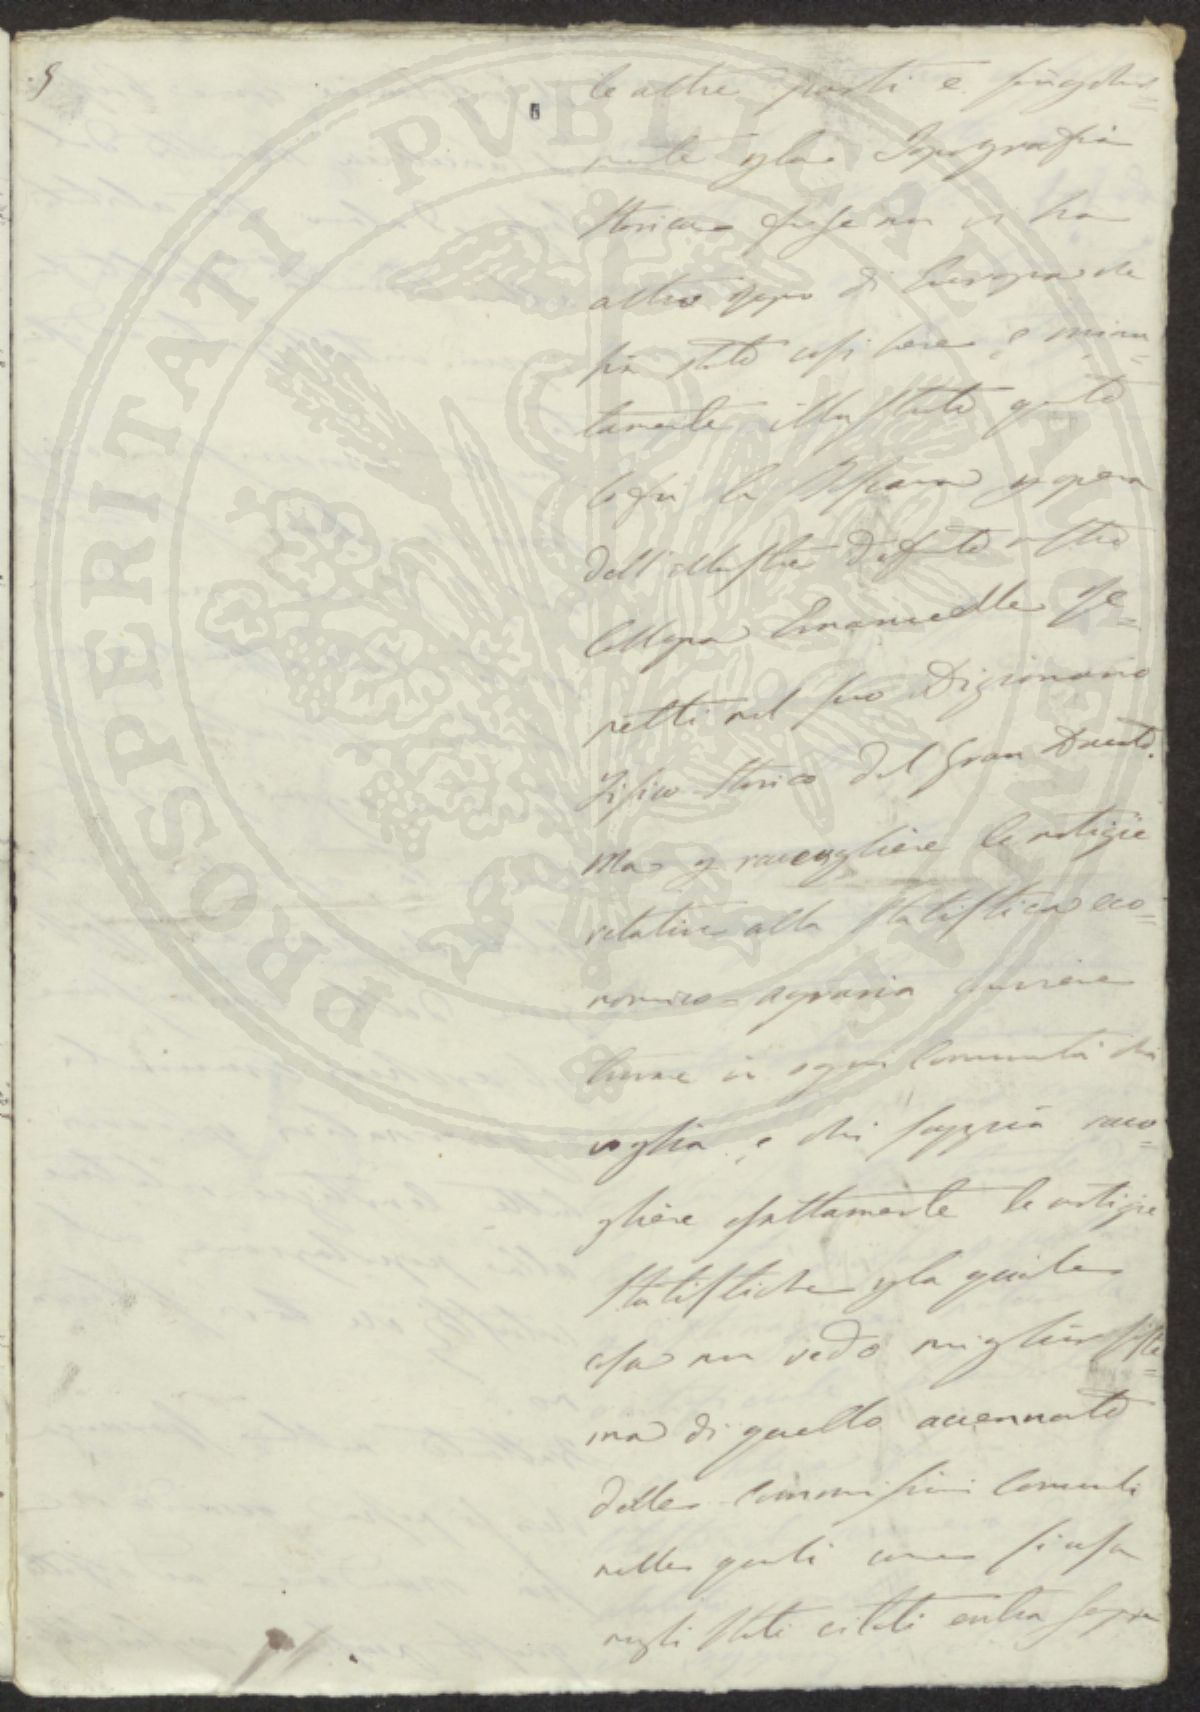 5
le altre parti e singolar=
mente p la Topografia
Storica forse non vi ha
altro Paese di Europa che
sia stato così bene, e minu=
tamente illustrato quanto
lo fu la Toscana p opera
dell'illustre defunto nostro
Collega Emanuelle Re=
petti nel suo Dizionario
Fisico Storico del Gran Ducato.
Ma p raccogliere le notizie
relative alla Statistica eco=
nomico-agraria conviene
trovare in ogni Comunità chi
voglia, e chi sappia racco=
gliere esattamente le notizie
Statistiche p la quale
cosa non vedo miglior siste=
ma di quello accennato
delle Commissioni Comunali
nelle quali come si usa
negli Stati citati entra sempre
PROSPERITATI PVBLICAE AVGENDAE